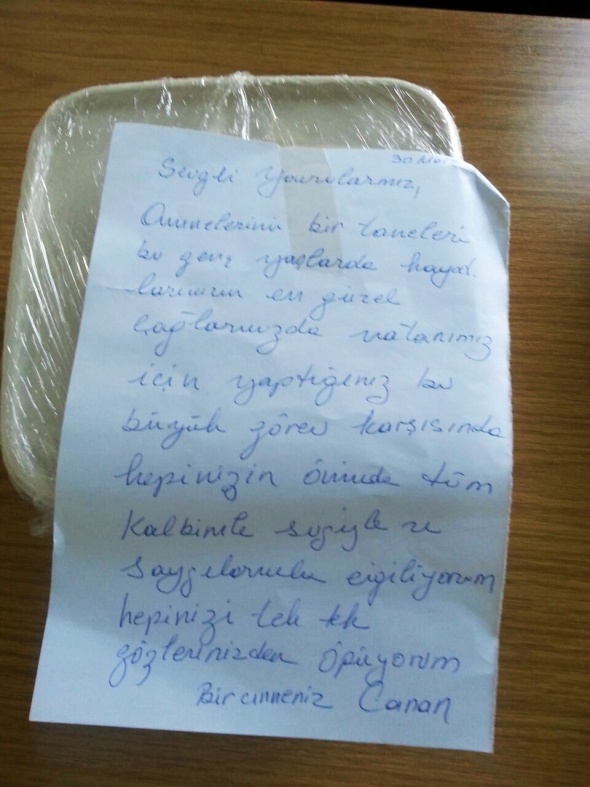 30 Mar
Sevgili Yavrularımız,
Annelerinin bir taneleri
bu genç yaşlarda hayat
larının en güzel
çağlarınızda vatanımız
için yaptığınız bu
büyük görev karşısında
hepinizin önünde tüm
kalbimle sevgiyle ve
saygılarımla eğiliyorum
hepinizi tek tek
gözlerinizden öpüyorum
Bir anneniz Canan